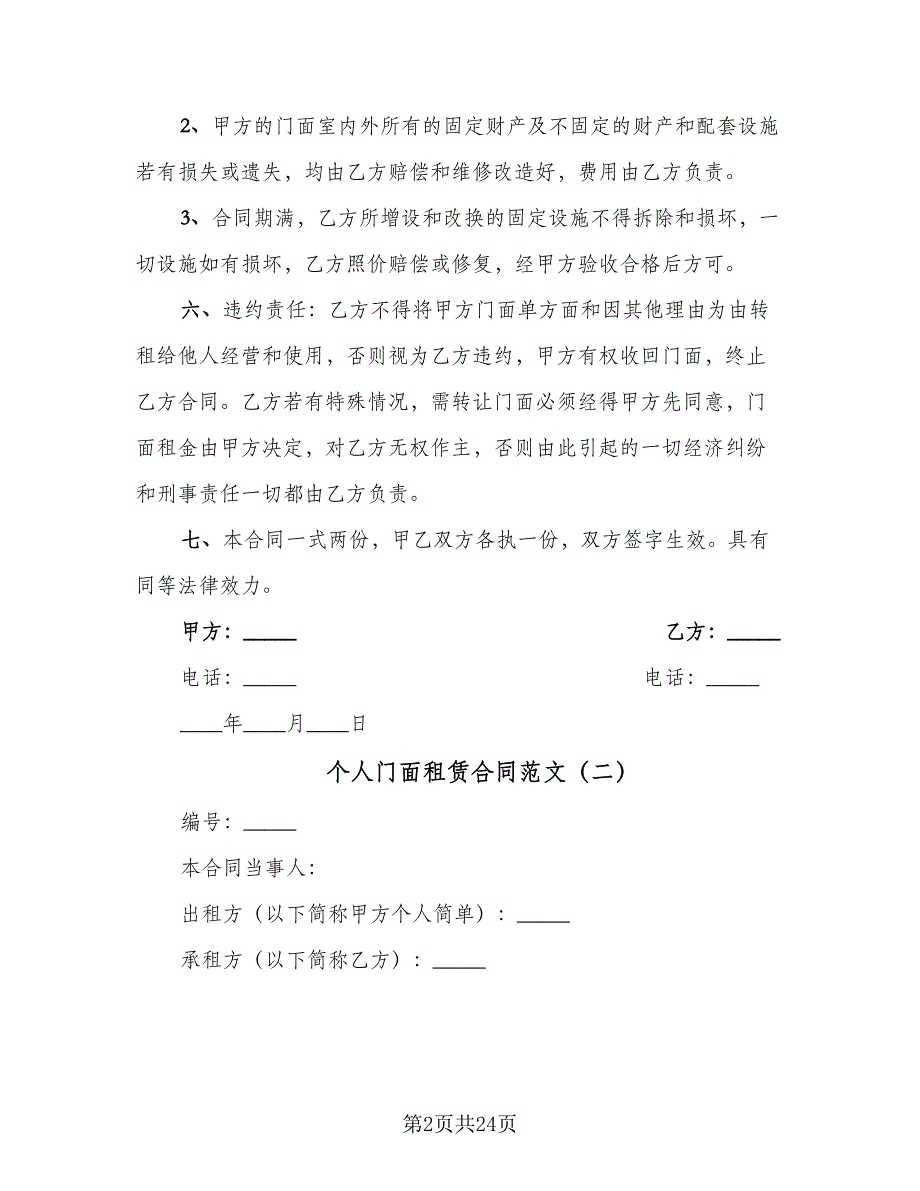 2、甲方的门面室内外所有的固定财产及不固定的财产和配套设施
若有损失或遗失，均由乙方赔偿和维修改造好，费用由乙方负责。
3、合同期满，乙方所增设和改换的固定设施不得拆除和损坏，一
切设施如有损坏，乙方照价赔偿或修复，经甲方验收合格后方可。
六、违约责任：乙方不得将甲方门面单方面和因其他理由为由转
租给他人经营和使用，否则视为乙方违约，甲方有权收回门面，终止
乙方合同。乙方若有特殊情况，需转让门面必须经得甲方先同意，门
面租金由甲方决定，对乙方无权作主，否则由此引起的一切经济纠纷
和刑事责任一切都由乙方负责。
七、本合同一式两份，甲乙双方各执一份，双方签字生效。具有
同等法律效力。
甲方：_____ 乙方：_____
电话：_____ 电话：_____
____年____月____日
个人门面租赁合同范文（二）
编号：_____
本合同当事人：
出租方（以下简称甲方个人简单）：_____
承租方（以下简称乙方）：_____
第2页共24页